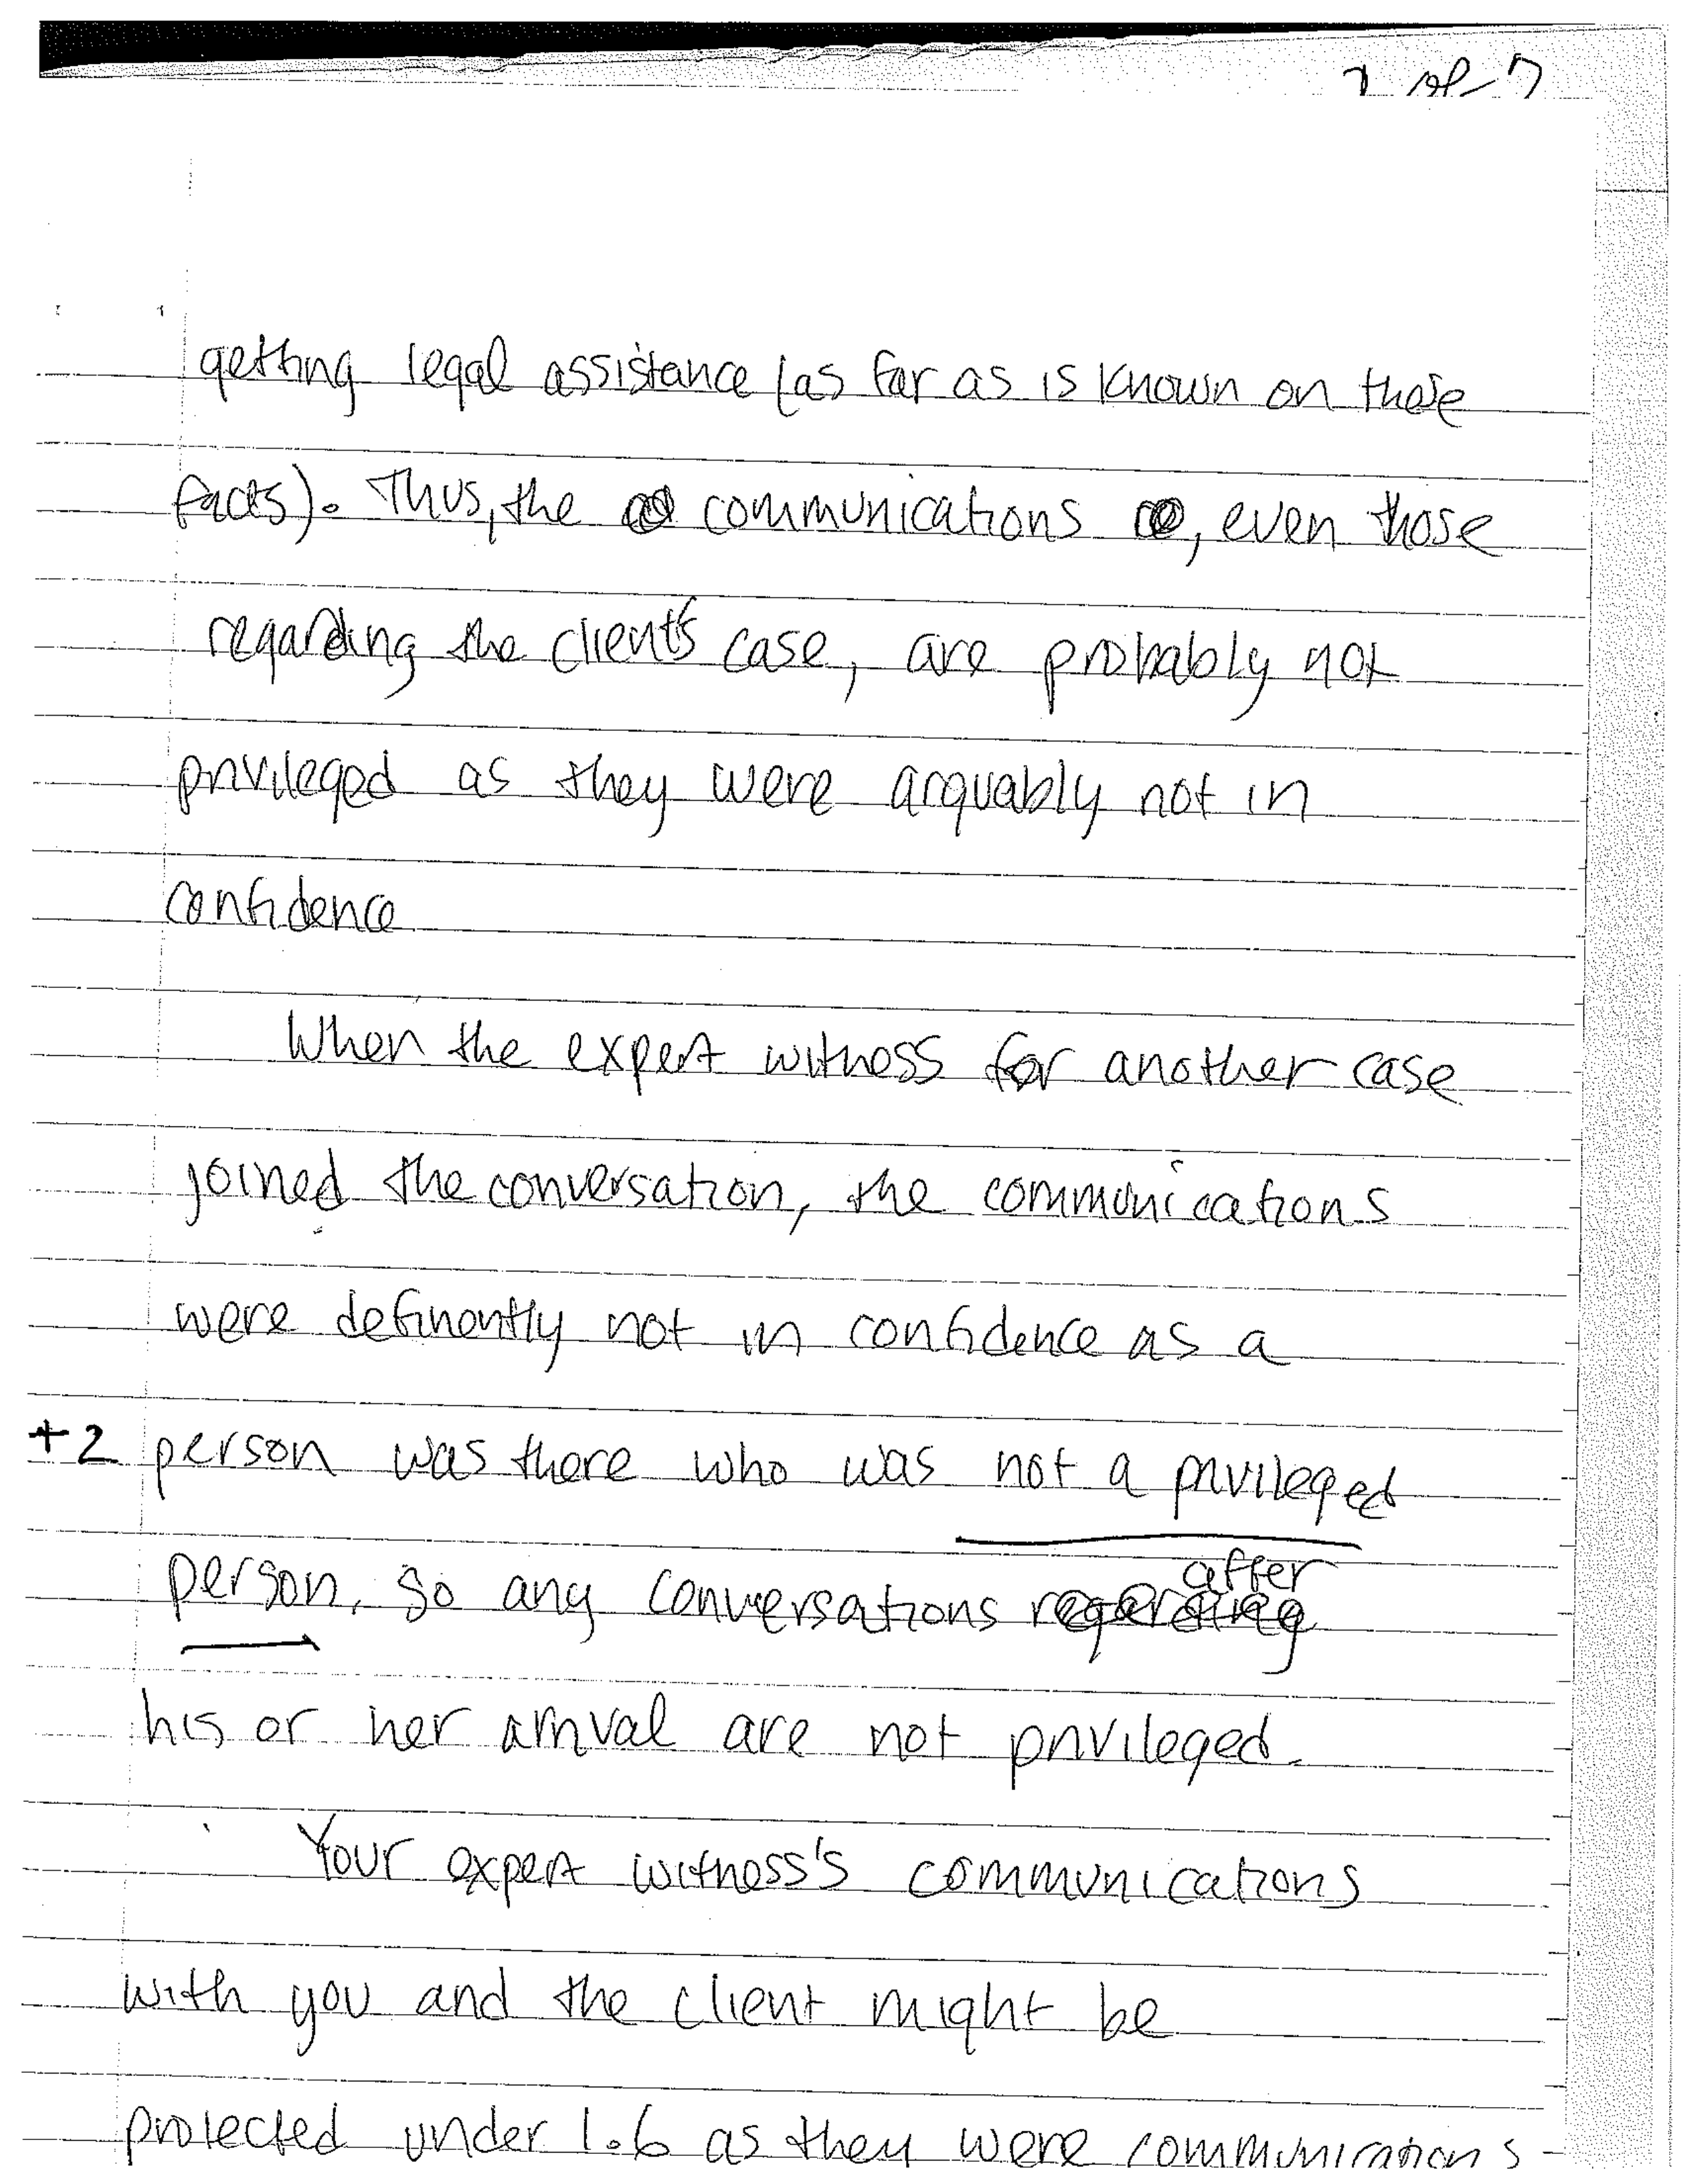 of 7
getting legal assistance (as far as is known on these
facts). Thus, the communications , even those
regarding the client's case, are probably not
privileged as they were arguably not in
confidence
When the expert witness for another case
joined the conversation, the communications
were definently not in confidence as a
+2 person was there who was not a privileged
after
person, so any conversations regarding
his or her arrival are not privileged.
Your expert witness's communications
with you and the client might be
protected under 1.6 as they were communications